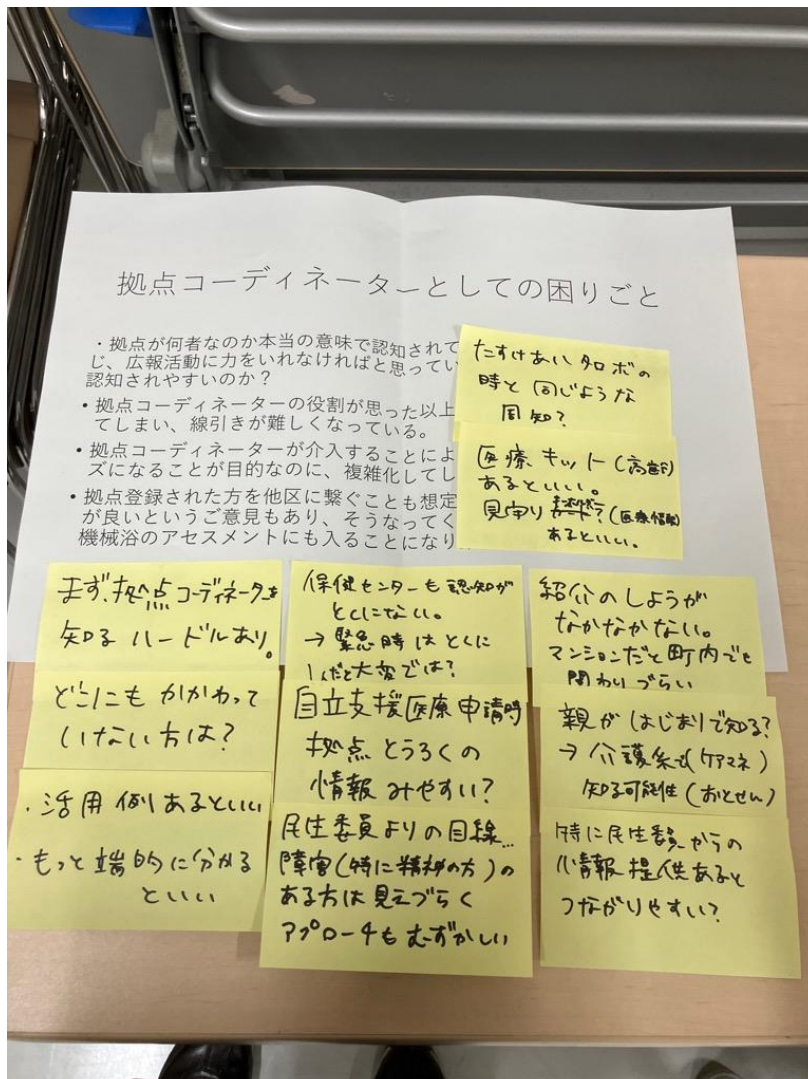 拠点コーディネーターとしての困りごと
・拠点が何者なのか本当の意味で認知されて
じ、広報活動に力をいれなければと思ってい
認知されやすいのか？
・拠点コーディネーターの役割が思った以上
てしまい、線引きが難しくなっている。
・拠点コーディネーターが介入することによ
ズになることが目的なのに、複雑化してし
・拠点登録された方を他区に繋ぐことも想定
が良いというご意見もあり、そうなってく
機械浴のアセスメントにも入ることになり
たすけあい タロボの
時と同じような
周知？
医療キット(高齢)
あるといい。
見守り
(医療情報)
あるといい。
まず、拠点コーディネーターを
知るハードルあり。
どこにもかかわって
いない方は？
・活用例あるといい
・もっと端的に分かる
といい
保健センターも認知が
とくにない。
→緊急時はとくに
1人だと大変では？
自立支援医療申請時
拠点とうろくの
情報みやすい？
民生委員よりの目線…
障害(特に精神の方)の
ある方は見えづらく
アプローチもむずかしい
紹介のしようが
なかなかない。
マンションだと町内でも
関わりづらい
親がはじまりで知る？
→介護系も(ケアマネ)
知る可能性(おとせん)
特に民生委員からの
情報提供あると
つながりやすい？